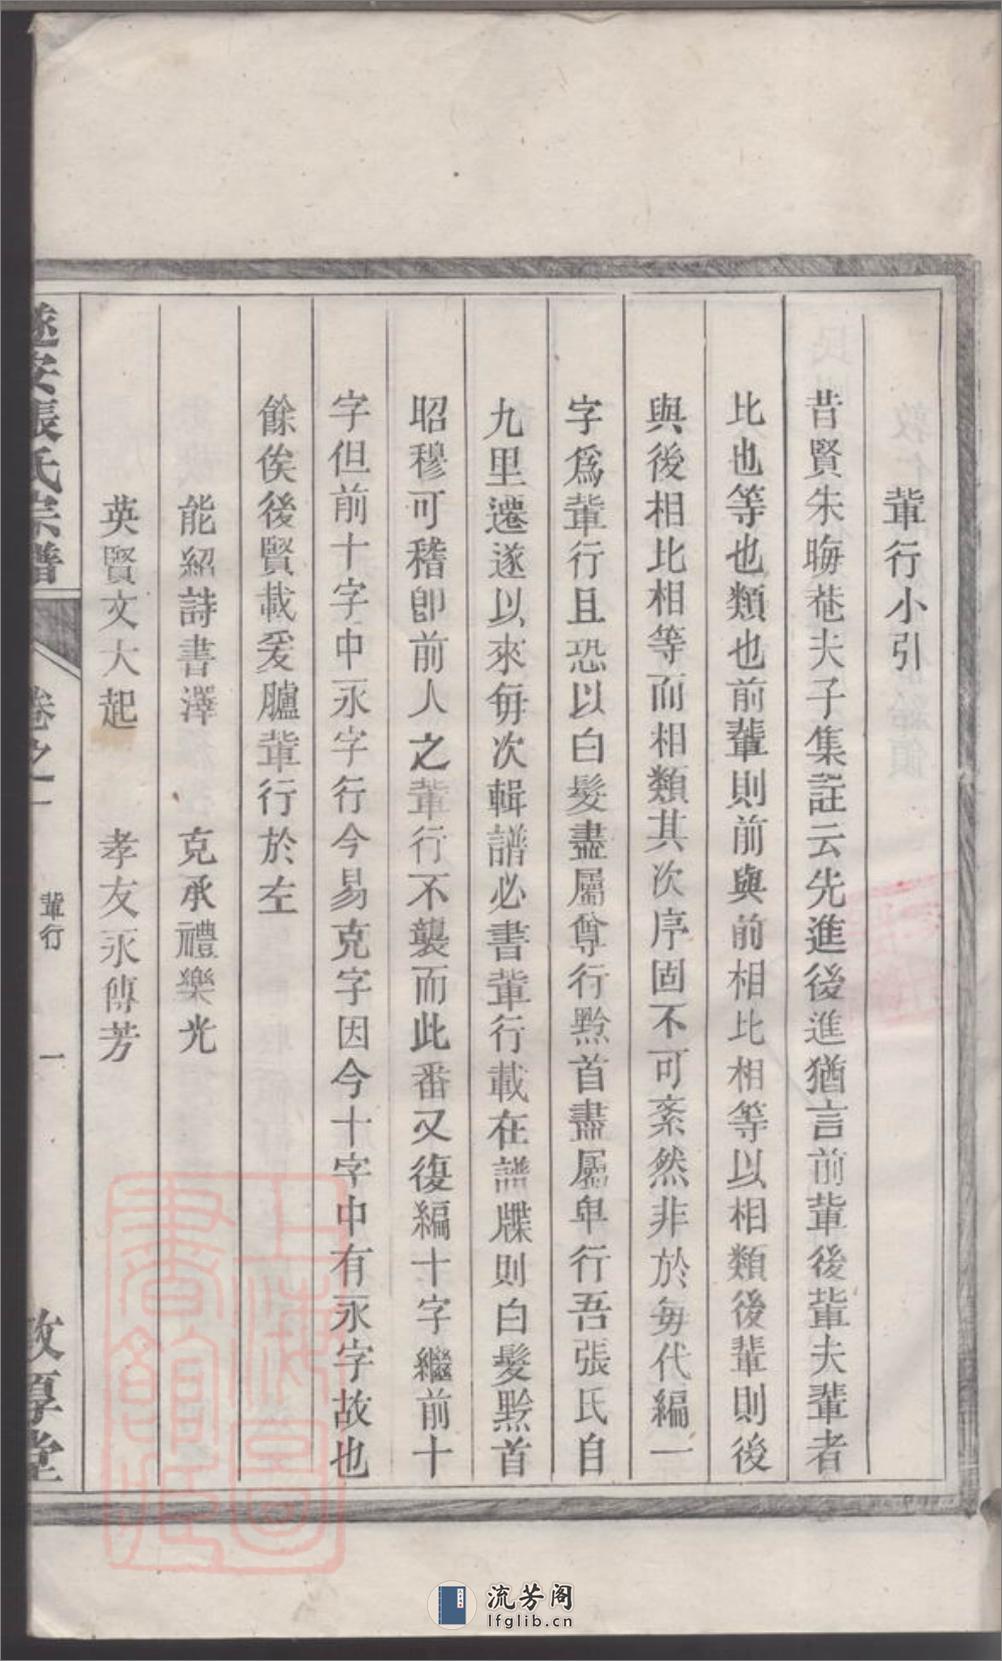 輩行小引
昔賢朱晦菴夫子集註云先進後進猶言前輩後輩夫輩者
比也等也類也前輩則前與前相比相等以相類後輩則後
與後相比相等而相類其次序固不可紊然非於每代編一
字爲輩行且恐以白髮盡屬尊行黔首盡屬卑行吾張氏自
九里遷遂以來每次輯譜必書輩行載在譜牒則白髮黔首
昭穆可稽卽前人之輩行不襲而此番又復編十字繼前十
字但前十字中永字行今易克字因今十字中有永字故也
餘俟後賢載爰臚輩行於左
能紹詩書澤 克承禮樂光
英賢文大起 孝友永傳芳
遂安張氏宗譜 卷之一 輩行 一 敦厚堂
上海圖書館藏
流芳阁
lfglib.cn